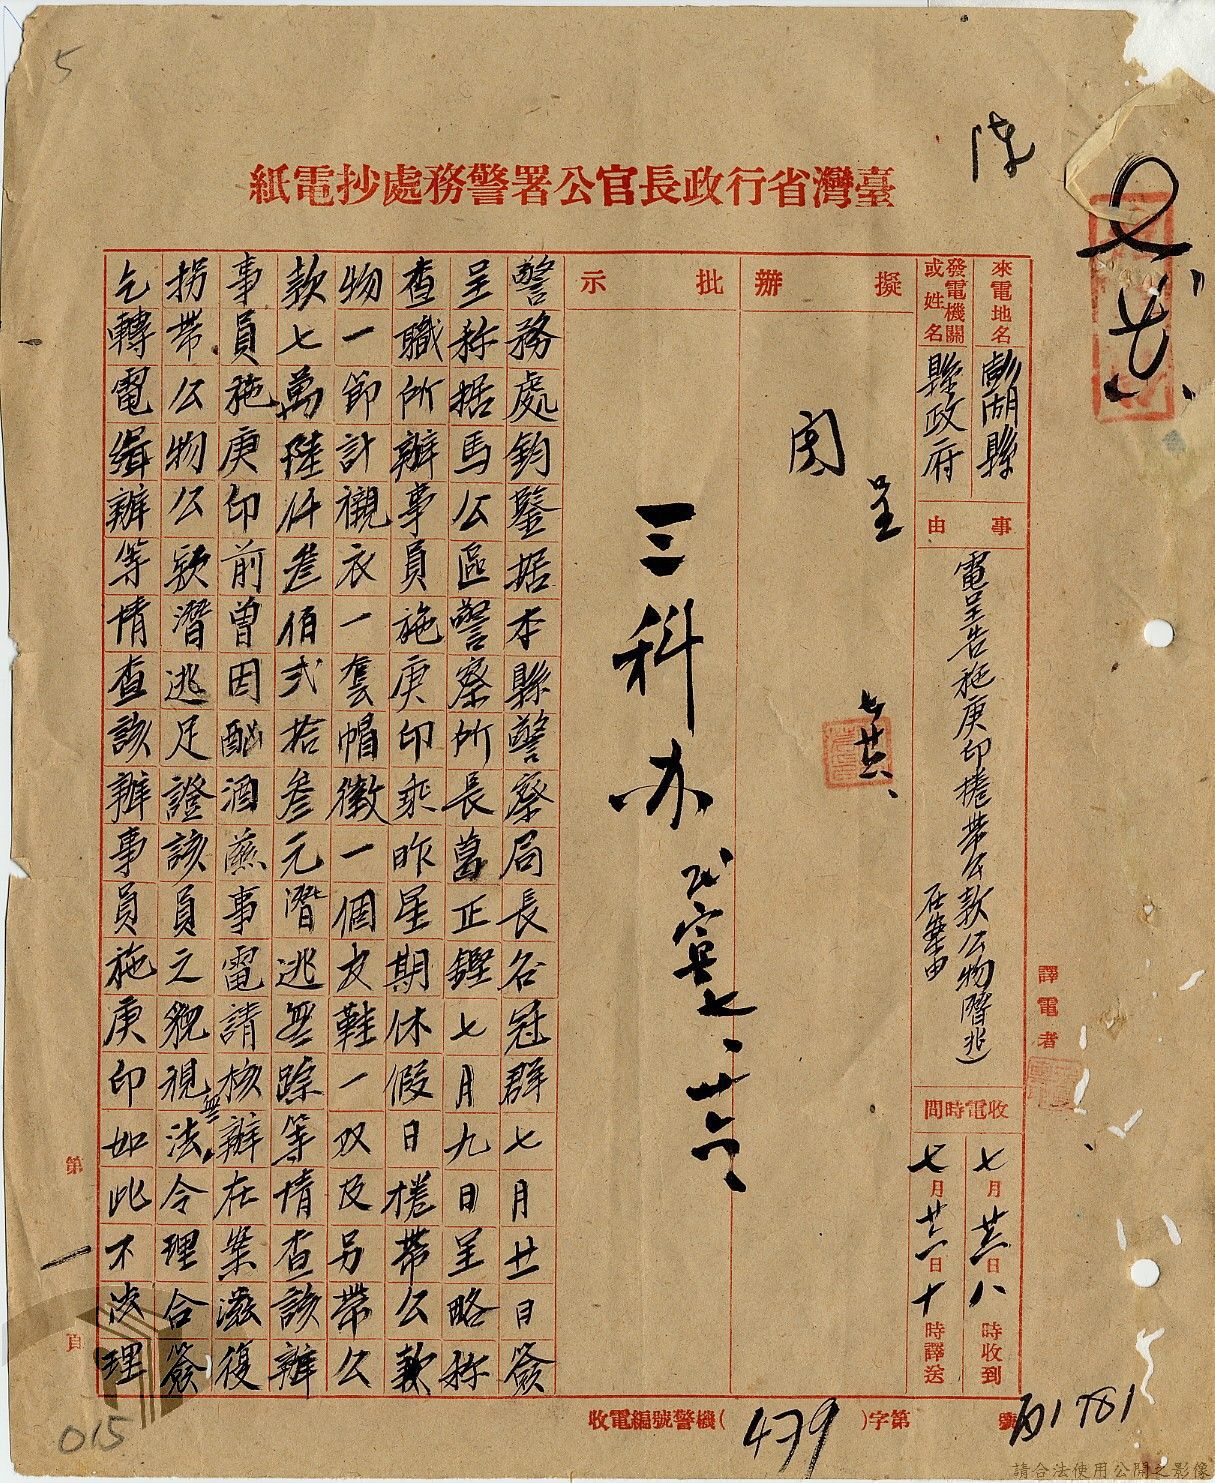 臺灣省行政長官公署警務處抄電紙
來電地名
澎湖縣
發電機關或姓名
縣政府
事由
電呈告施庚印捲帶公款公物潛逃
在案由
收電時間
七月廿六日八時收到
七月廿六日十時譯送
譯電者
擬辦
呈
閱
七廿六
批示
三科办
七、廿六
警務處鈞鑒据本縣警察局長名冠群七月廿日簽
呈称据馬公區警察所長葛正鏗七月九日呈略称
查職所辦事員施庚印乘昨星期休假日捲帶公款
物一節計襯衣一套帽徽一個皮鞋一双及另帶公
款七萬陸仟叁佰弍拾叁元潛逃無踪等情查該辦
事員施庚印前曾因酗酒滋事電請核辦在案茲復
拐带公物公款潛逃足證該員之藐視法令理合簽
乞轉電緝辦等情查該辦事員施庚印如此不法理
第一頁
收電編號警機(479)字第
號
101781
015
5
請合法使用公開之影像